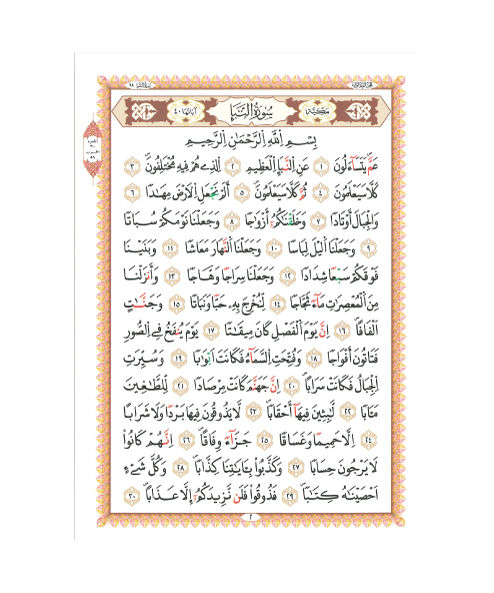 مَكِّيَّة سُورَةُ النَّبَإِ آيَاتُهَا ٤٠
بِسْمِ اللّٰهِ الرَّحْمٰنِ الرَّحِيمِ
عَمَّ يَتَسَآءَلُونَ ١ عَنِ النَّبَإِ الْعَظِيمِ ٢ الَّذِي هُمْ فِيهِ مُخْتَلِفُونَ ٣
كَلَّا سَيَعْلَمُونَ ٤ ثُمَّ كَلَّا سَيَعْلَمُونَ ٥ أَلَمْ نَجْعَلِ الْأَرْضَ مِهَادًا ٦
وَالْجِبَالَ أَوْتَادًا ٧ وَخَلَقْنَاكُمْ أَزْوَاجًا ٨ وَجَعَلْنَا نَوْمَكُمْ سُبَاتًا
٩ وَجَعَلْنَا الَّيْلَ لِبَاسًا ١٠ وَجَعَلْنَا النَّهَارَ مَعَاشًا ١١ وَبَنَيْنَا
فَوْقَكُمْ سَبْعًا شِدَادًا ١٢ وَجَعَلْنَا سِرَاجًا وَهَّاجًا ١٣ وَأَنْزَلْنَا
مِنَ الْمُعْصِرَاتِ مَآءً ثَجَّاجًا ١٤ لِنُخْرِجَ بِهِ حَبًّا وَنَبَاتًا ١٥ وَجَنَّاتٍ
أَلْفَافًا ١٦ إِنَّ يَوْمَ الْفَصْلِ كَانَ مِيقَاتًا ١٧ يَوْمَ يُنْفَخُ فِي الصُّورِ
فَتَأْتُونَ أَفْوَاجًا ١٨ وَفُتِحَتِ السَّمَآءُ فَكَانَتْ أَبْوَابًا ١٩ وَسُيِّرَتِ
الْجِبَالُ فَكَانَتْ سَرَابًا ٢٠ إِنَّ جَهَنَّمَ كَانَتْ مِرْصَادًا ٢١ لِلطَّاغِينَ
مَآبًا ٢٢ لَابِثِينَ فِيهَآ أَحْقَابًا ٢٣ لَا يَذُوقُونَ فِيهَا بَرْدًا وَلَا شَرَابًا
٢٤ إِلَّا حَمِيمًا وَغَسَّاقًا ٢٥ جَزَآءً وِفَاقًا ٢٦ إِنَّهُمْ كَانُوا
لَا يَرْجُونَ حِسَابًا ٢٧ وَكَذَّبُوا بِآيَاتِنَا كِذَّابًا ٢٨ وَكُلَّ شَيْءٍ
أَحْصَيْنَاهُ كِتَابًا ٢٩ فَذُوقُوا فَلَنْ نَزِيدَكُمْ إِلَّا عَذَابًا ٣٠
٢